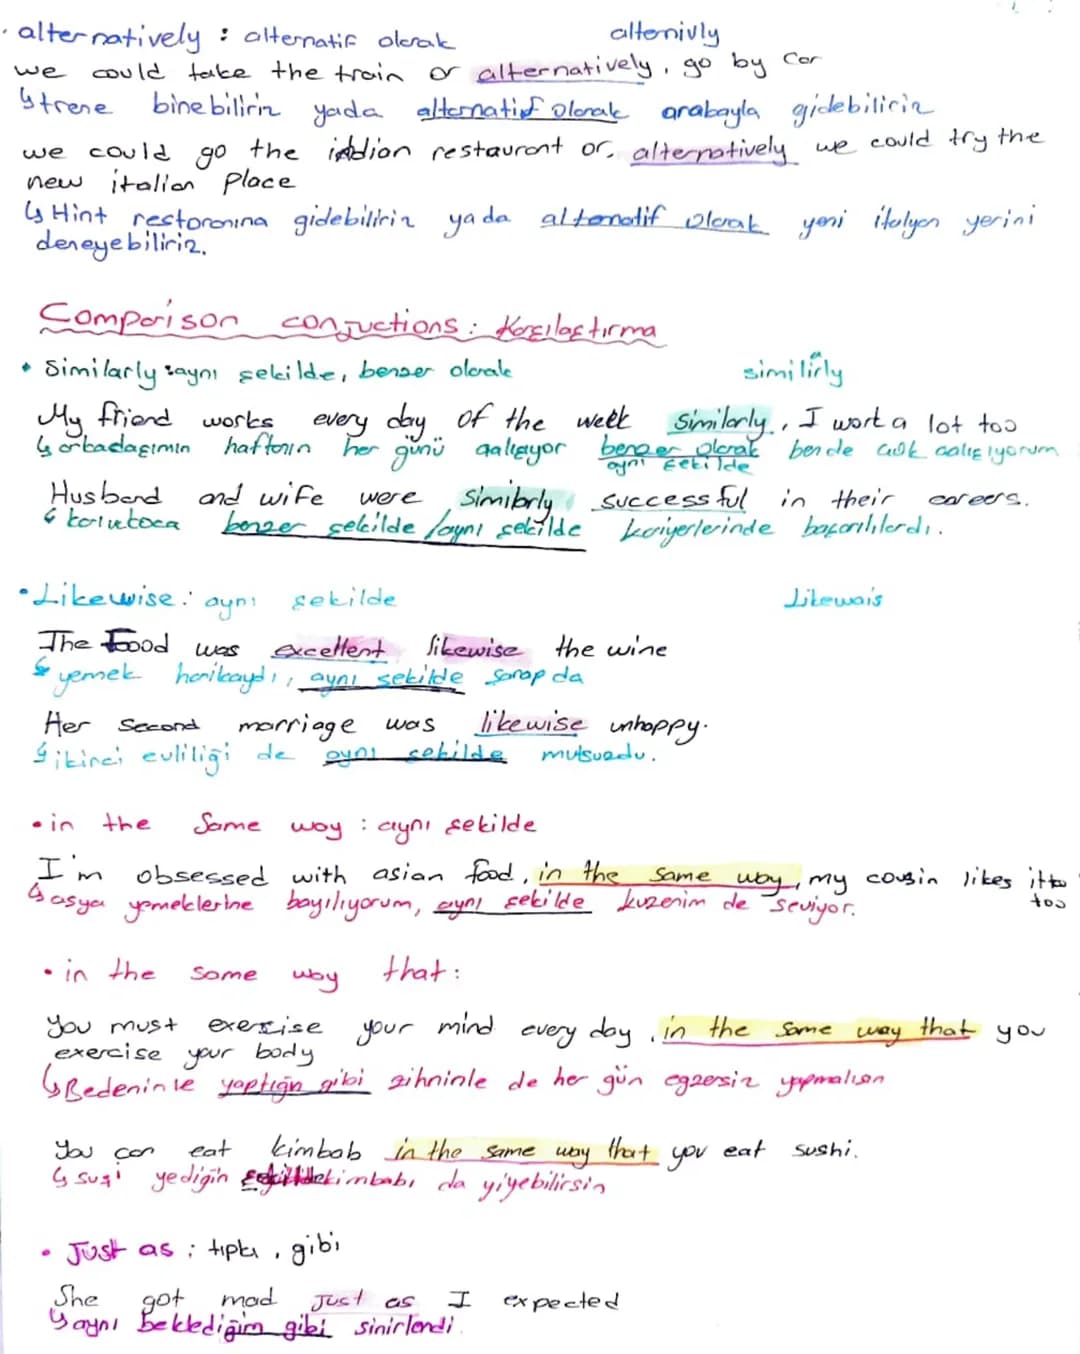 • alternatively : alternatif olarak altenivly
we could take the train or alternatively, go by car
↳ trene binebiliriz yada alternatif olarak arabayla gidebiliriz
we could go the indian restaurant or, alternatively we could try the
new italian place
↳ Hint restoranına gidebiliriz ya da alternatif olarak yeni italyan yerini
deneyebiliriz.
Comparison conjuctions : Karşılaştırma
• Similarly : aynı şekilde, benzer olarak similırly
My friend works every day of the week Similarly, I work a lot too
↳ arkadaşımın haftanın her günü çalışıyor benzer olarak bende çok çalışıyorum
aynı şekilde
Husband and wife were similarly successful in their careers.
↳ karı koca benzer şekilde / aynı şekilde kariyerlerinde başarılılardı.
• Likewise : aynı şekilde Likewais
The Food was excellent likewise the wine
↳ yemek harikaydı, aynı şekilde şarap da
Her second marriage was likewise unhappy.
↳ ikinci evliliği de aynı şekilde mutsuzdu.
• in the same way : aynı şekilde
I'm obsessed with asian food, in the same way, my cousin likes it
too
↳ asya yemeklerine bayılıyorum, aynı şekilde kuzenim de seviyor.
• in the same way that :
You must exercise your mind every day, in the same way that you
exercise your body
↳ Bedeninle yaptığın gibi zihninle de her gün egzersiz yapmalısın
You can eat kimbab in the same way that you eat sushi.
↳ suşi yediğin kimbabı da yiyebilirsin
• Just as ; tıpkı, gibi
She got mad just as I expected
↳ aynı beklediğim gibi sinirlendi.